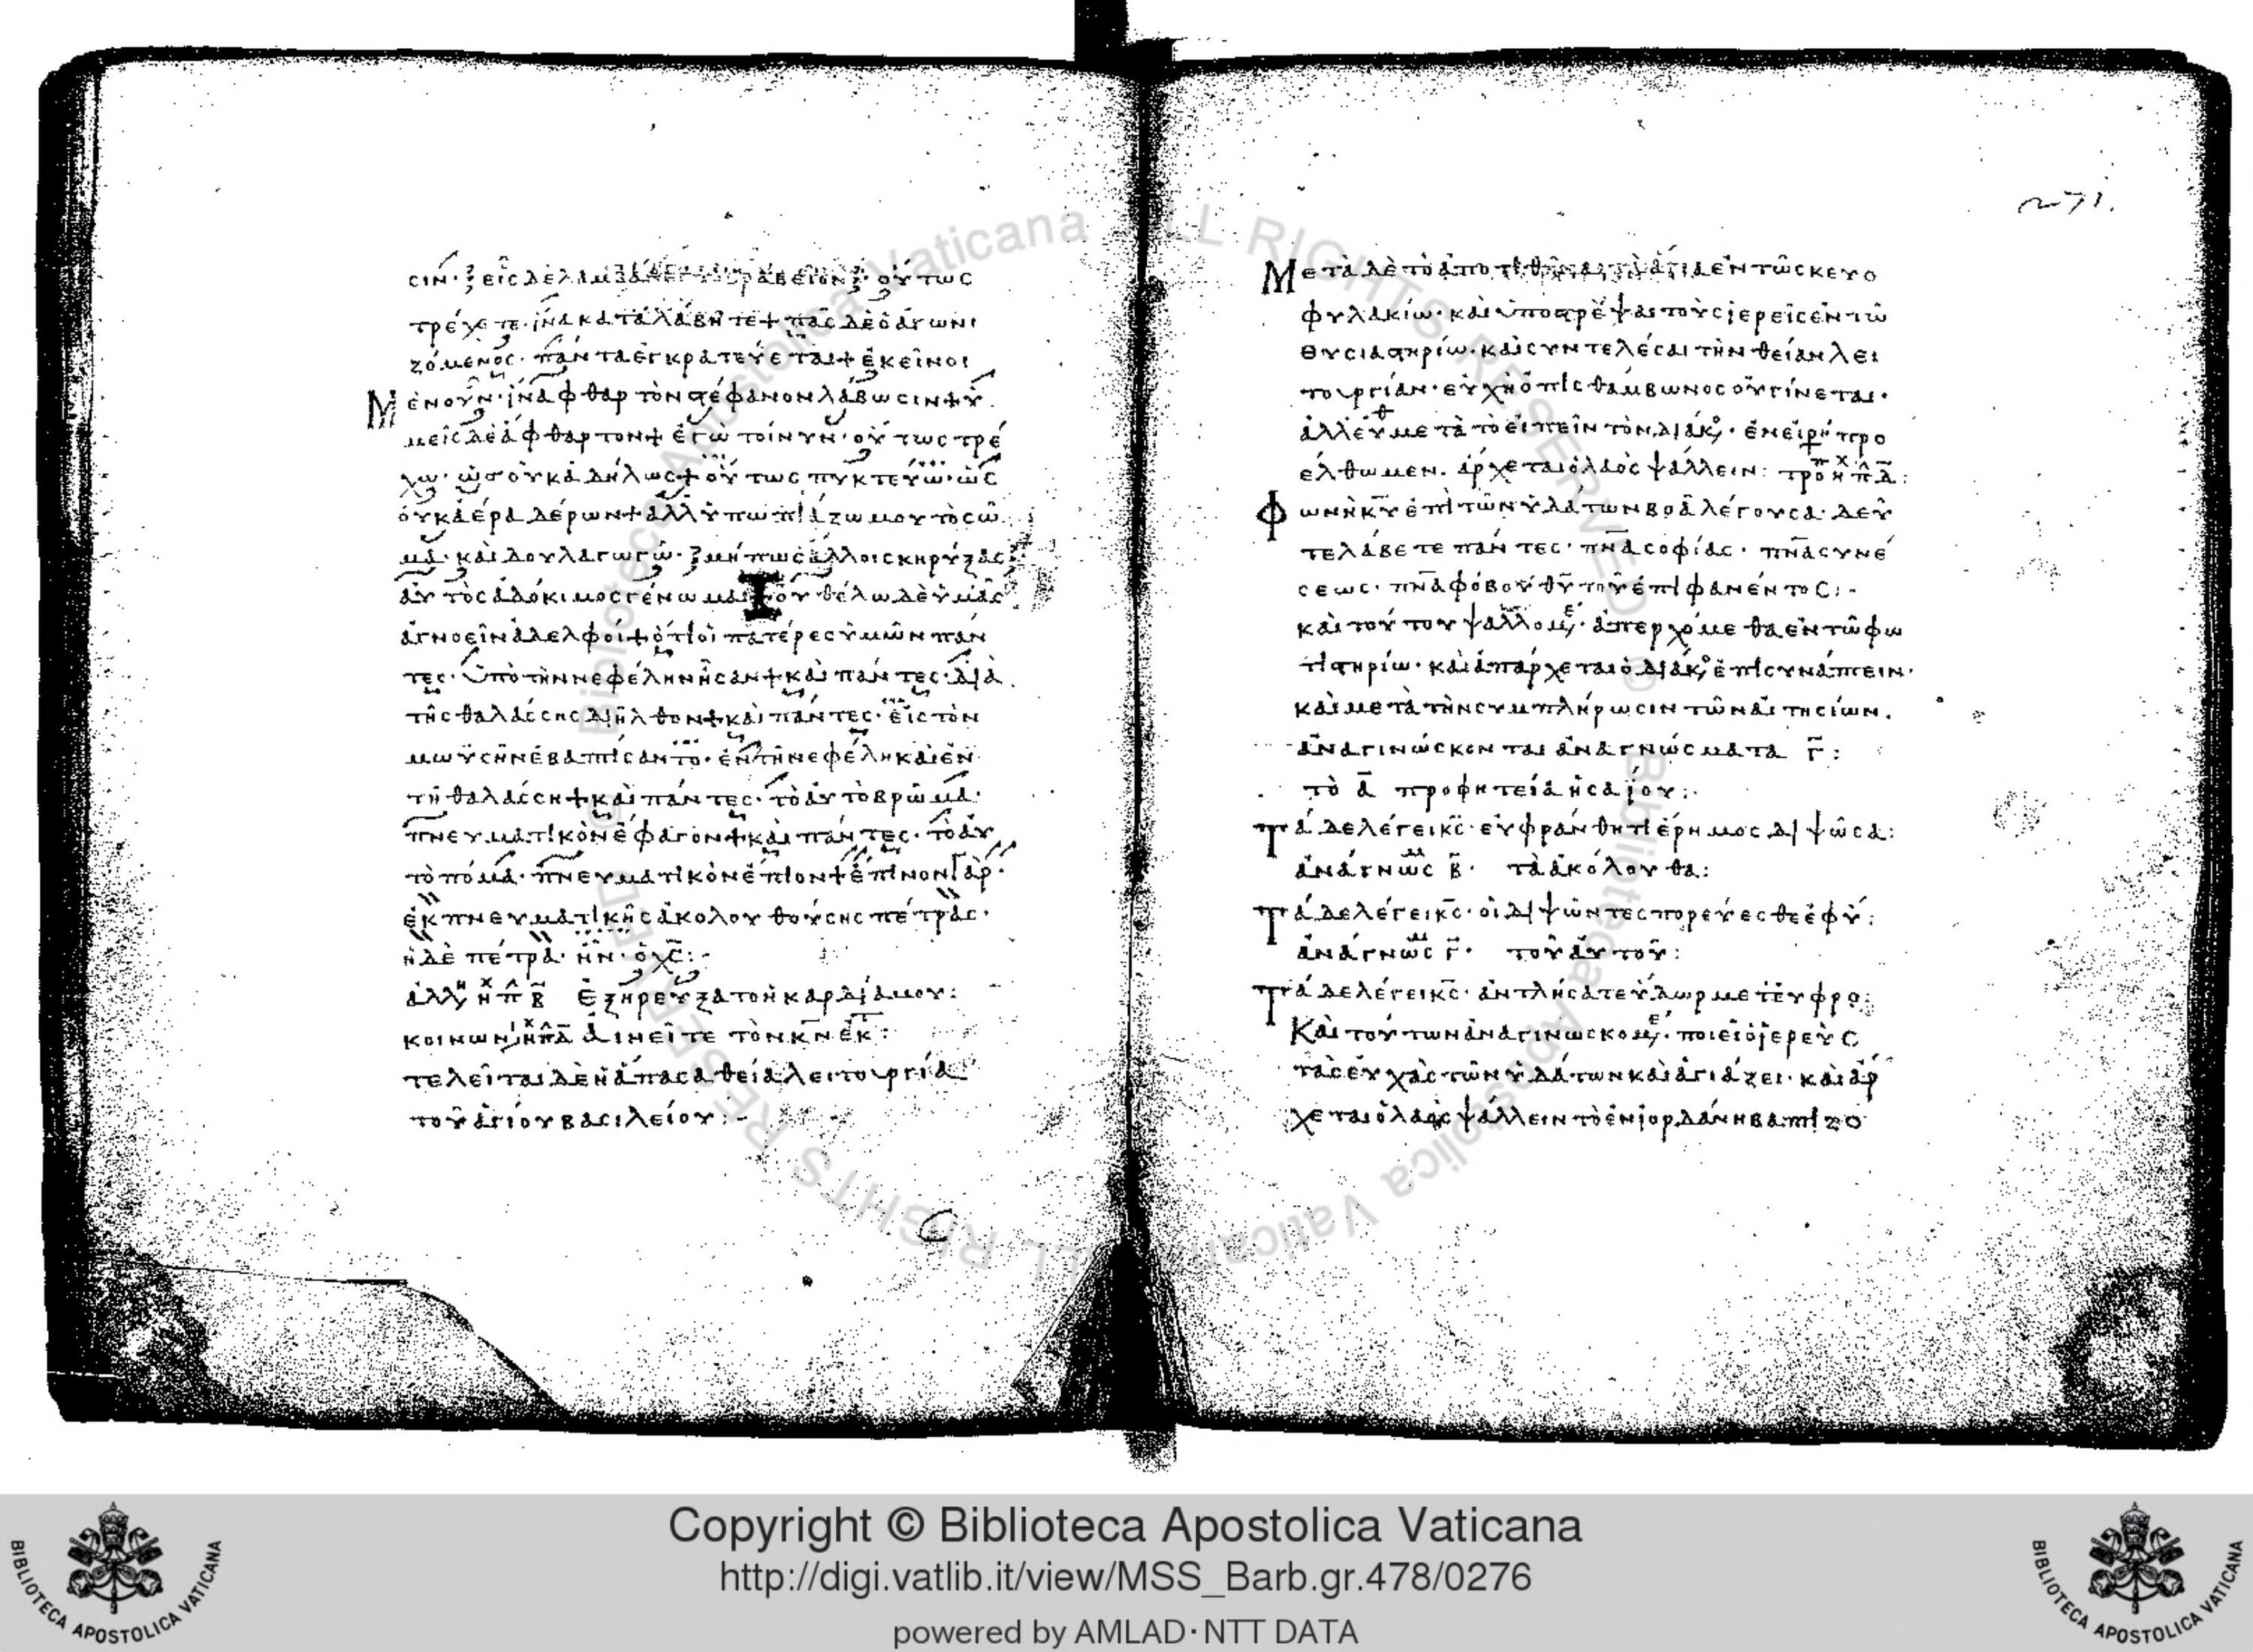 σιν· εἷς δὲ λαμβάνει τὸ βραβεῖον· οὕτως
τρέχετε· ἵνα καταλάβητε + πᾶς δὲ ὁ ἀγωνι
ζόμενος· πάντα ἐγκρατεύεται + ἐκεῖνοι
Μὲν οὖν· ἵνα φθαρτὸν στέφανον λάβωσιν + ὑ
μεῖς δὲ ἄφθαρτον + ἐγὼ τοίνυν· οὕτως τρέ
χω· ὡς οὐκ ἀδήλως + οὕτως πυκτεύω· ὡς
οὐκ ἀέρα δέρων + ἀλλ' ὑπωπιάζω μου τὸ σῶ
μα· καὶ δουλαγωγῶ· μήπως ἄλλοις κηρύξας
αὐτὸς ἀδόκιμος γένωμαι οὐ θέλω δὲ ὑμᾶς
ἀγνοεῖν ἀδελφοί + ὅτι οἱ πατέρες ὑμῶν πάν
τες· ὑπὸ τὴν νεφέλην ἦσαν + καὶ πάντες· διὰ
τῆς θαλάσσης διῆλθον + καὶ πάντες· εἰς τὸν
μωϋσῆν ἐβαπτίσαντο· ἐν τῇ νεφέλῃ καὶ ἐν
τῇ θαλάσσῃ + καὶ πάντες· τὸ αὐτὸ βρῶμα·
πνευματικὸν ἔφαγον + καὶ πάντες· τὸ αὐ
τὸ πόμα· πνευματικὸν ἔπιον + ἔπινον γὰρ·
ἐκ πνευματικῆς ἀκολουθούσης πέτρας·
ἡ δὲ πέτρα· ἦν· ὁ χς:-
ἀλλη ηχ πλ β Ἐξηρεύξατο ἡ καρδία μου:
κοινωνι ηχ πλ α Αἰνεῖτε τὸν κν ἐκ:
τελεῖται δὲ ἡ ἅπασα θεία λειτουργία
τοῦ ἁγίου βασιλείου:-
271.
Μετὰ δὲ τὸ ἀποτεθῆναι τὰ ἅγια ἐν τῷ σκευο
φυλακίῳ· καὶ ὑποστρέψαι τοὺς ἱερεῖς ἐν τῷ
θυσιαστηρίῳ· καὶ συντελέσαι τὴν θείαν λει
τουργίαν· εὐχὴ ὀπισθάμβωνος οὐ γίνεται·
ἀλλ' εὐθ μετὰ τὸ εἰπεῖν τὸν διάκο· ἐν εἰρη προ
έλθωμεν. ἄρχεται ὁ λαὸς ψάλλειν: τροπ ηχ πλ δ:
Φωνὴ κυ ἐπὶ τῶν ὑδάτων βοᾷ λέγουσα· δεῦ
τε λάβετε πάντες· πνα σοφίας· πνα συνέ
σεως· πνα φόβου θυ τοῦ ἐπιφανέντος:-
καὶ τούτου ψαλλομε· ἀπερχόμεθα ἐν τῷ φω
τιστηρίῳ· καὶ ἀπάρχεται ὁ διάκο ἐπισυνάπτειν·
καὶ μετὰ τὴν συμπλήρωσιν τῶν αἰτησίων.
ἀναγινώσκονται ἀναγνώσματα γ:
τὸ α προφητεία ἠσαΐου:
Τάδε λέγει κς· εὐφράνθητι ἔρημος διψῶσα:
ἀνάγνωσμα β· τὰ ἀκόλουθα:
Τάδε λέγει κς· οἱ διψῶντες πορεύεσθε ἐφ' ὕ:
ἀνάγνωσμα γ· τοῦ αὐτοῦ:
Τάδε λέγει κς· ἀντλήσατε ὕδωρ μετ' εὐφρο:
Καὶ τούτων ἀναγινωσκομε· ποιεῖ ὁ ἱερεὺς
τὰς εὐχὰς τῶν ὑδάτων καὶ ἁγιάζει· καὶ ἄρ
χεται ὁ λαὸς ψάλλειν τὸ ἐν ἰορδάνῃ βαπτιζο
Copyright © Biblioteca Apostolica Vaticana
http://digi.vatlib.it/view/MSS_Barb.gr.478/0276
powered by AMLAD·NTT DATA
BIBLIOTECA APOSTOLICA VATICANA
BIBLIOTECA APOSTOLICA VATICANA